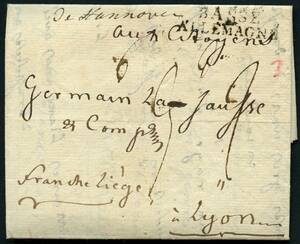 De Hannover
BASSE
ALLEMAGNE
Aux Citoyens
Germain
& Comp
franche Liége
à Lyon